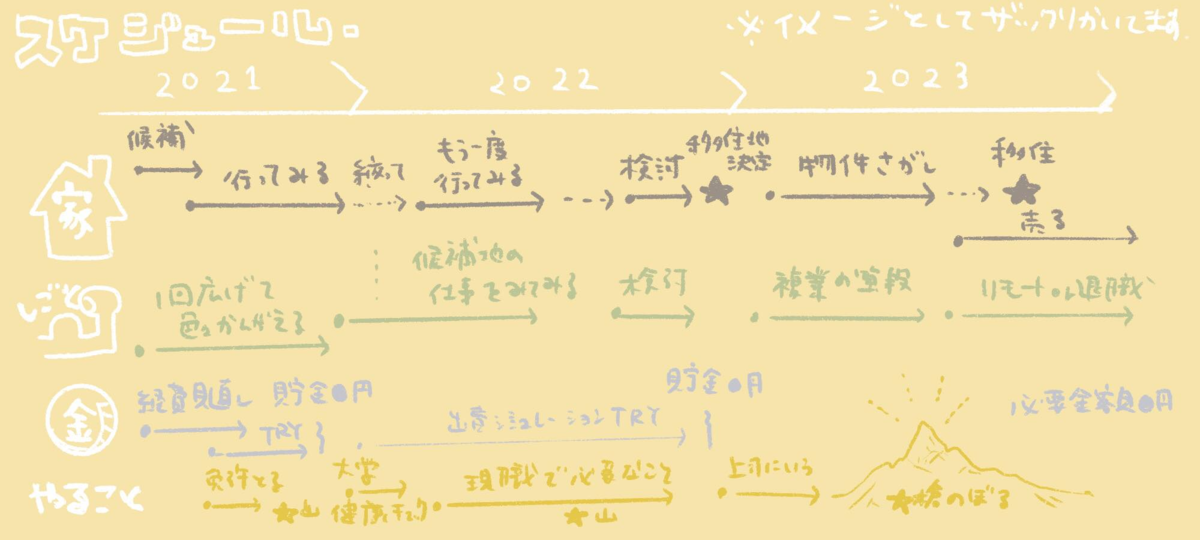 スケジュール.
※イメージとしてザックリかいてます.
2021
2022
2023
家
候補
行ってみる
絞って
もう一度
行ってみる
検討
移住地
決定
物件さがし
移住
売る
しごと
1回広げて
色々かんがえる
候補地の
仕事をみてみる
検討
複業の登録
リモートor退職
金
経費見直し
貯金●円
TRY
出費シミュレーションTRY
貯金●円
必要金額●円
やること
免許とる
★山
大学
健康チェック
現職で必要なこと
★山
上司にいう
★槍のぼる